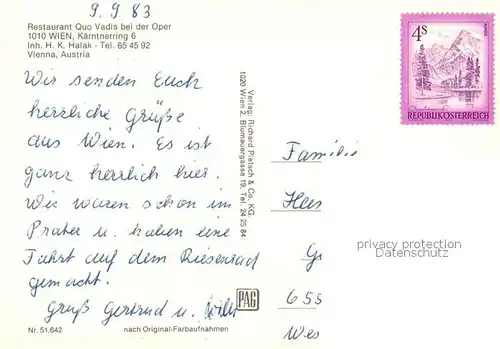 9.9.83
Restaurant Quo Vadis bei der Oper
1010 WIEN, Kärntnerring 6
Inh. H. K. Halak - Tel. 65 45 92
Vienna, Austria
Wir senden Euch
herzliche Grüße
aus Wien. Es ist
ganz herrlich hier.
Wir waren schon im
Prater u. haben eine
Fahrt auf dem Riesenrad
gemacht.
Gruß Gertrud u. Willi
Nr. 51.642
nach Original-Farbaufnahmen
Verlag: Richard Pietsch & Co. KG.
1020 Wien 2, Blumauergasse 19, Tel. 24 25 84
PAG
4S
REPUBLIK ÖSTERREICH
Familie
Hees
G
655
Wes
privacy protection
Datenschutz